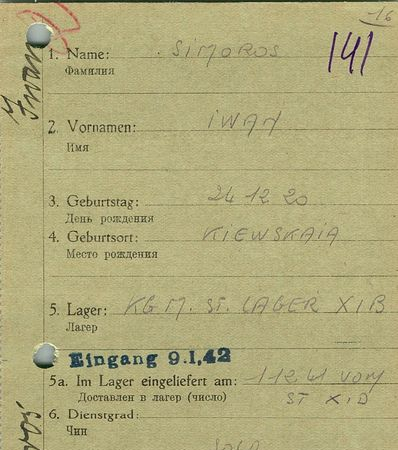 16
1. Name: SIMOROS
Фамилия
141
Iwan
2. Vornamen: IWAN
Имя
3. Geburtstag: 24 12 20
День рождения
4. Geburtsort: KIEWSKAIA
Место рождения
5. Lager: KG M. ST. LAGER XI B
Лагер
Eingang 9.1.42
5a. Im Lager eingeliefert am: 1 12 41 vom
Доставлен в лагер (число) ST XI D
6. Dienstgrad:
Чин